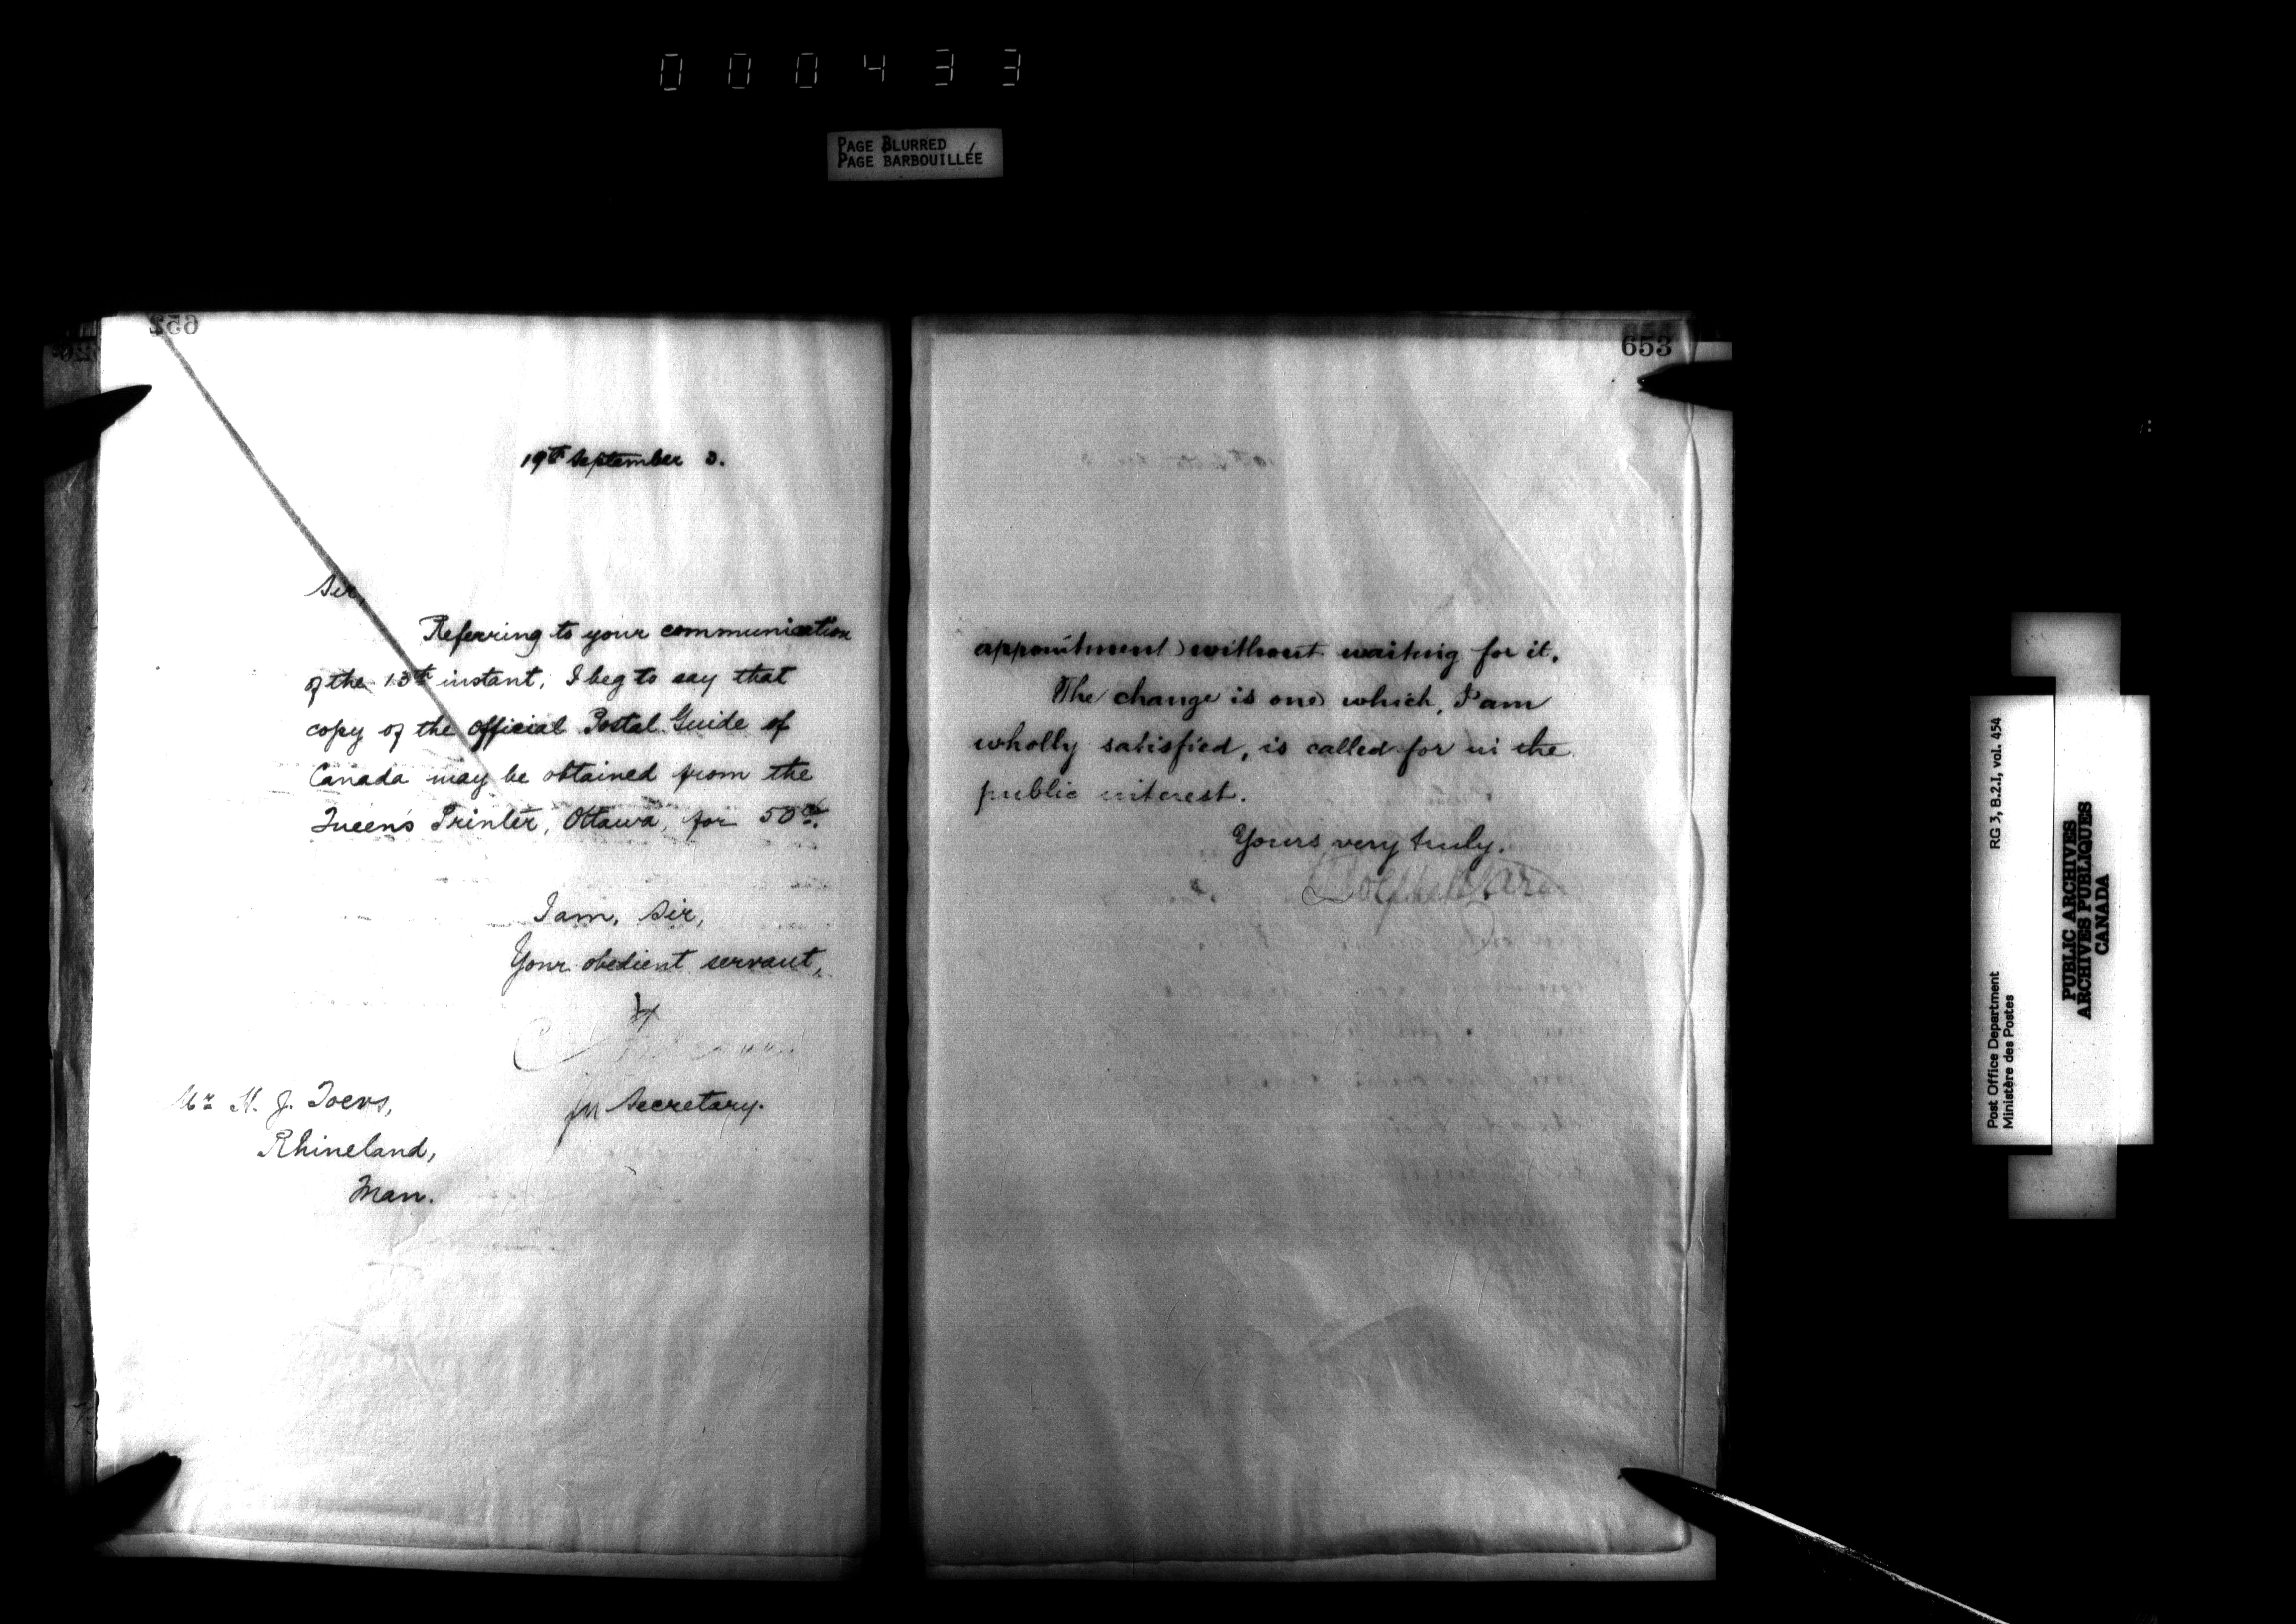 000433
PAGE BLURRED
PAGE BARBOUILLÉE
652
19th September 3.
Sir,
Referring to your communication
of the 13th instant, I beg to say that
copy of the Official Postal Guide of
Canada may be obtained from the
Queen's Printer, Ottawa, for 50cs.
I am, Sir,
Your obedient servant,
for Secretary.
Mr H. J. Toews,
Rhineland,
Man.
653
appointment) without waiting for it.
The change is one which, I am
wholly satisfied, is called for in the
public interest.
Yours very truly.
Post Office Department
Ministère des Postes
RG 3, B.2.I, vol. 454
PUBLIC ARCHIVES
ARCHIVES PUBLIQUES
CANADA